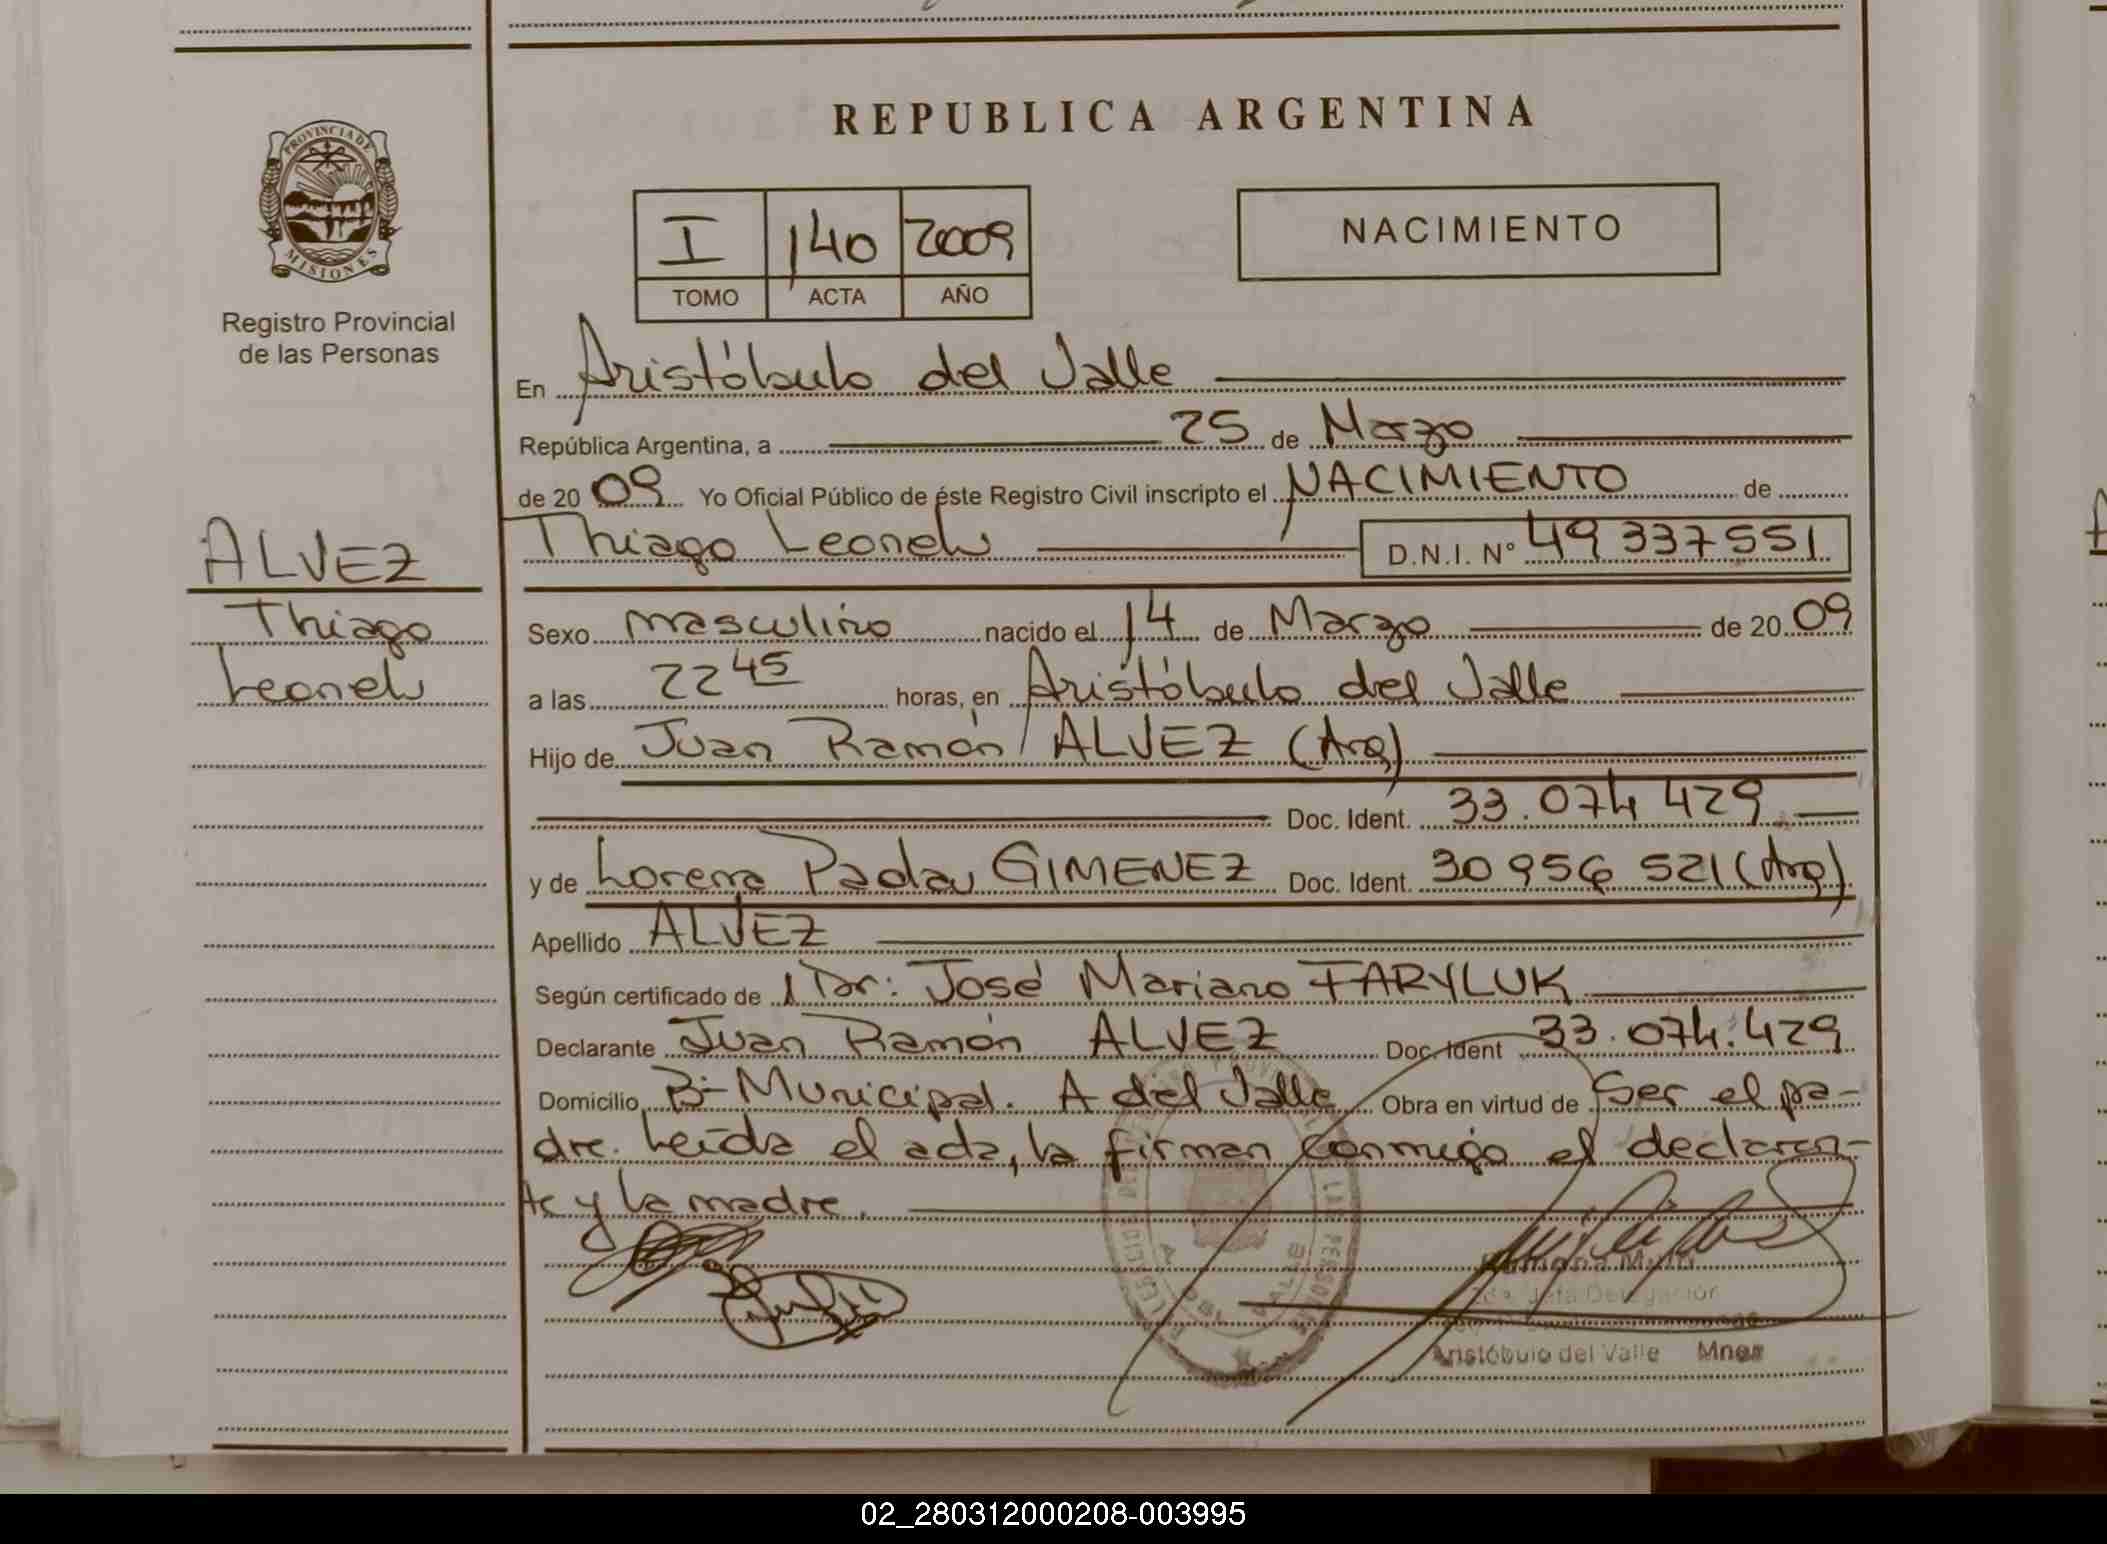 PROVINCIA DE
MISIONES
Registro Provincial
de las Personas
ALVEZ
Thiago
Leonel
REPUBLICA ARGENTINA
I 140 2009
TOMO ACTA AÑO
NACIMIENTO
En Aristóbulo del Valle
República Argentina, a 25 de Marzo
de 2009 Yo Oficial Público de éste Registro Civil inscripto el NACIMIENTO de
Thiago Leonel D.N.I. N° 49 337 551
Sexo masculino nacido el 14 de Marzo de 2009
a las 22 45 horas, en Aristóbulo del Valle
Hijo de Juan Ramón ALVEZ (Arg)
Doc. Ident. 33.074 429
y de Lorena Paola GIMENEZ Doc. Ident. 30 956 521 (Arg)
Apellido ALVEZ
Según certificado de Dr: José Mariano FARYLUK
Declarante Juan Ramón ALVEZ Doc. Ident 33.074.429
Domicilio B- Municipal. A del Valle Obra en virtud de Ser el pa-
dre. Leída el acta, la firman conmigo el declaran-
te y la madre.
Aristóbulo del Valle Mnes
02_280312000208-003995